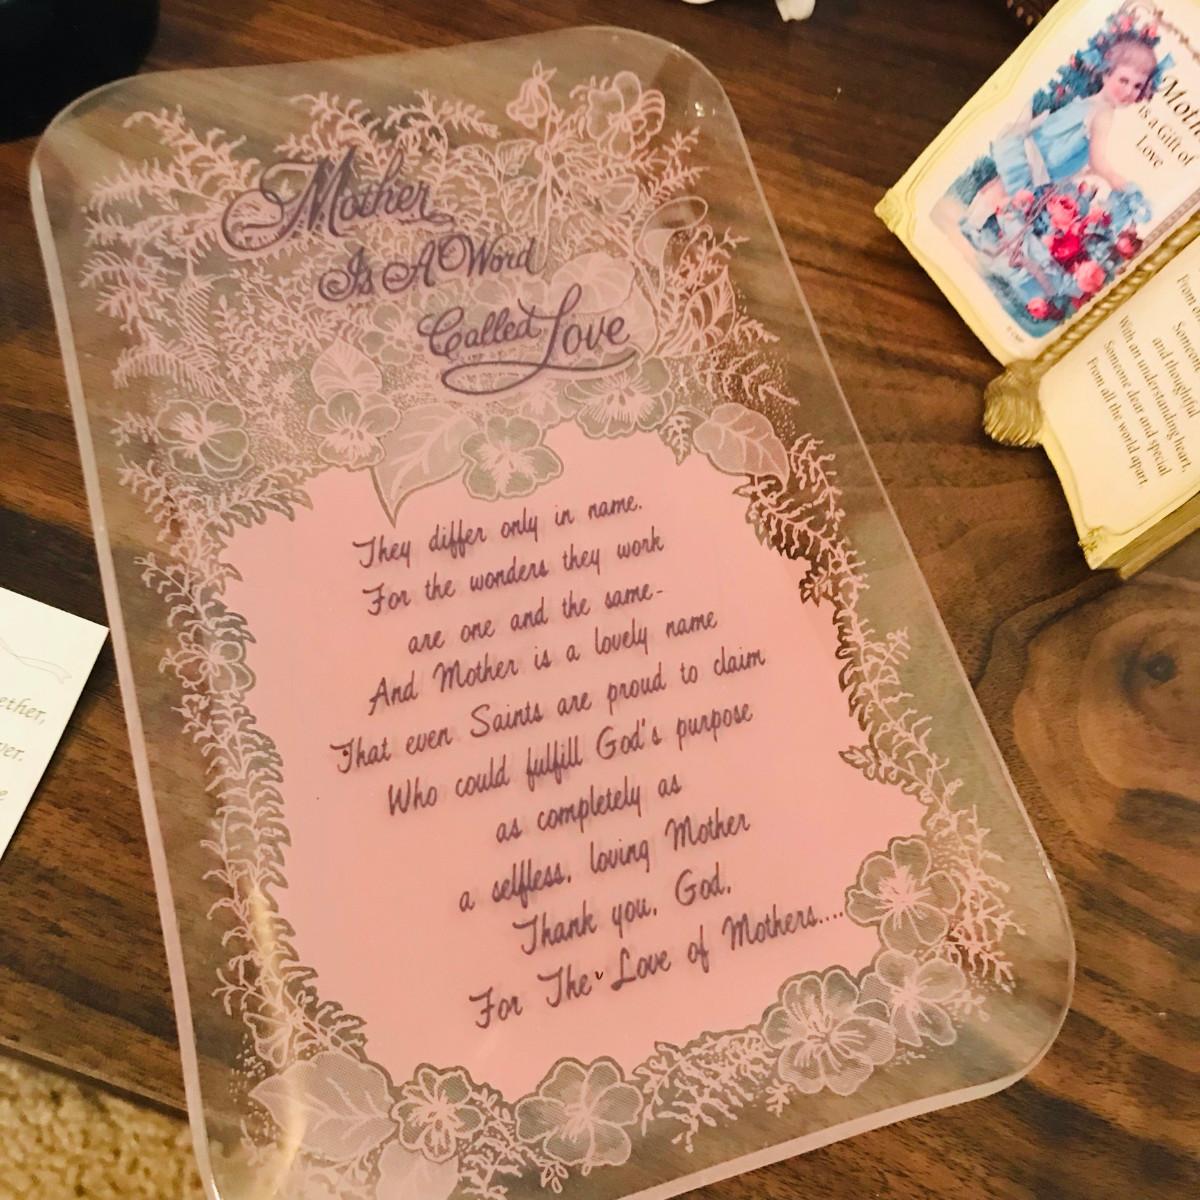 Mother
Is A Word
Called Love
They differ only in name.
For the wonders they work
are one and the same-
And Mother is a lovely name
That even Saints are proud to claim
Who could fulfill God's purpose
as completely as
a selfless, loving Mother
Thank you, God,
For The Love of Mothers....
is a Gift of
Love
Someone
and thoughtful
With an understanding heart,
Someone dear and special
From all the world apart.